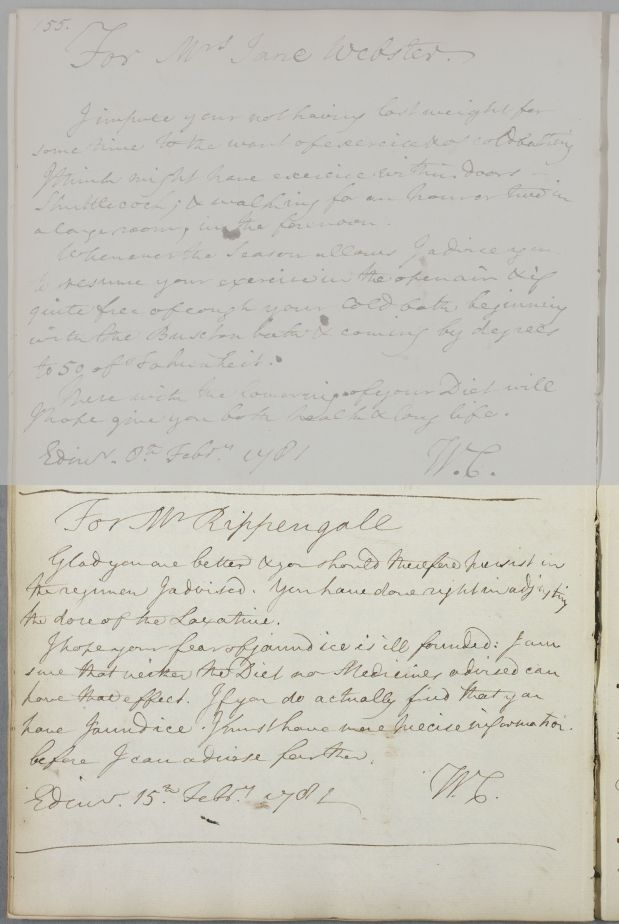 155.
For Mrs Jane Webster.
I impute your not having lost weight for
some time to the want of exercise & of cold bathing
I think might have exercise within doors –
Shuttlecock; & walking for an hour or two in
a large room, in the forenoon.
Whenever the Season allows I advise you
to resume your exercise in the open air & if
quite free of cough your Cold bath beginning
with the Buxton bath & coming by degrees
to 50 of Fahrenheit.
These with the lowering of your Diet will
I hope give you both health & long life.
Edinr. 8th Febry. 1781
W.C.
For Mr Rippengall
Glad you are better & you should therefore persist in
the regimen I advised. You have done right in adjusting
the dose of the Laxative.
I hope your fear of jaundice is ill founded: I am
sure that neither the Diet nor Medicines advised can
have that effect. If you do actually find that you
have Jaundice I must have more precise information
before I can advise farther.
Edinr. 15th Febry 1781
W.C.